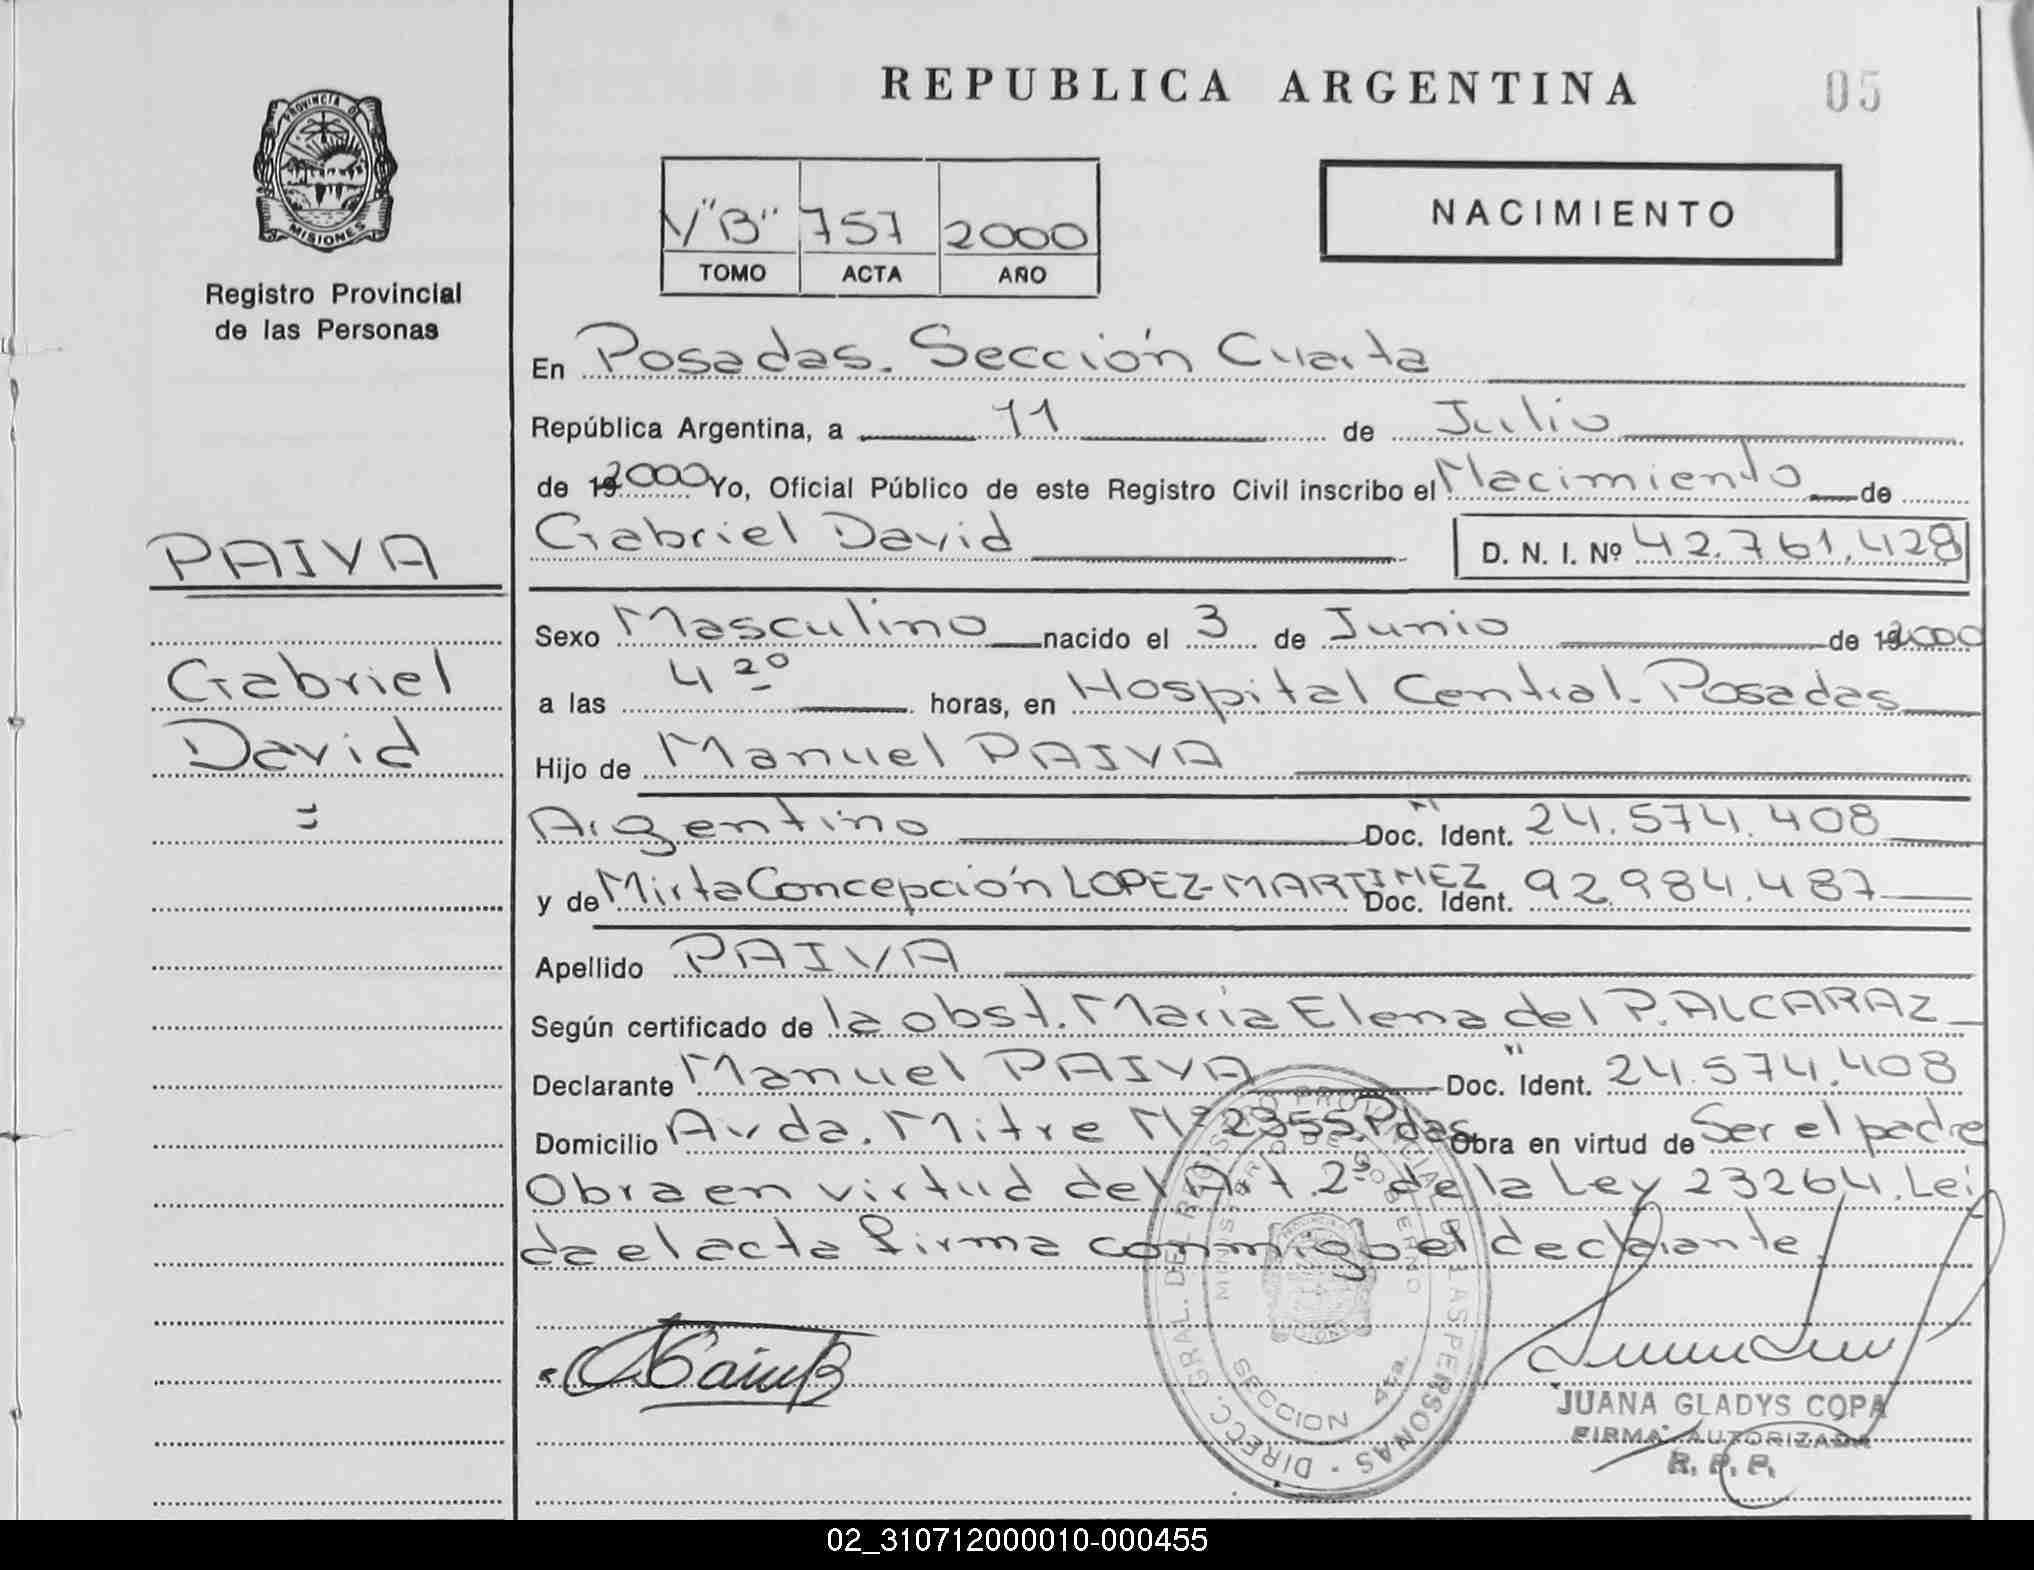 REPUBLICA ARGENTINA 05
PROVINCIA DE
MISIONES
Registro Provincial
de las Personas
V"B" 757 2000
TOMO ACTA AÑO
NACIMIENTO
En Posadas. Sección Cuarta
República Argentina, a 11 de Julio
de 19 2000 Yo, Oficial Público de este Registro Civil inscribo el Nacimiento de
Gabriel David D. N. I. Nº 42.761.428
PAIVA
Gabriel
David
=
Sexo Masculino nacido el 3 de Junio de 19 2000
a las 4 20 horas, en Hospital Central. Posadas
Hijo de Manuel PAIVA
Argentino Doc. Ident. 24.574.408
y de Mirta Concepción LOPEZ-MARTINEZ Doc. Ident. 92.984.487
Apellido PAIVA
Según certificado de la obst. María Elena del P. ALCARAZ
Declarante Manuel PAIVA Doc. Ident. 24.574.408
Domicilio Avda. Mitre Nº 2355 Pdas Obra en virtud de Ser el padre
Obra en virtud del Art. 2º de la Ley 23264. Lei
da el acta firma conmigo el declarante.
DIRECC. GRAL. DEL REGISTRO PROVINCIAL DE LAS PERSONAS
MINISTERIO DE GOBIERNO
SECCION 4ta.
JUANA GLADYS COPA
FIRMA AUTORIZADA
R. P. P.
02_310712000010-000455